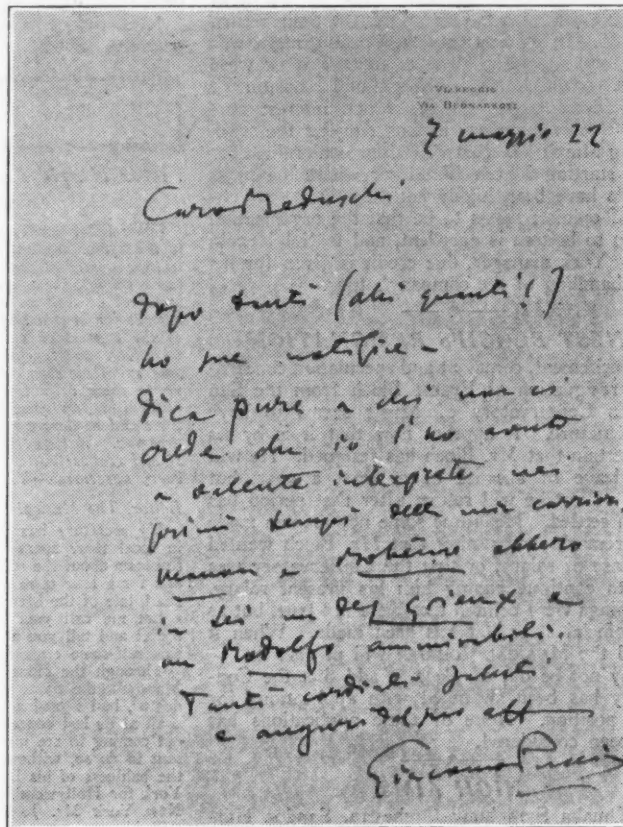 VIAREGGIO
VIA BUONARROTI
7 maggio 22
Caro Beduschi
dopo tanti (ahi quanti!)
ho sue notizie –
Dica pure a chi non ci
crede che io l'ho avuto
a valente interprete nei
primi tempi della mia carriera.
Manon e Bohème ebbero
in Lei un Des Grieux e
un Rodolfo ammirabili.
Tanti cordiali saluti
e auguri dal suo aff
Giacomo Puccini